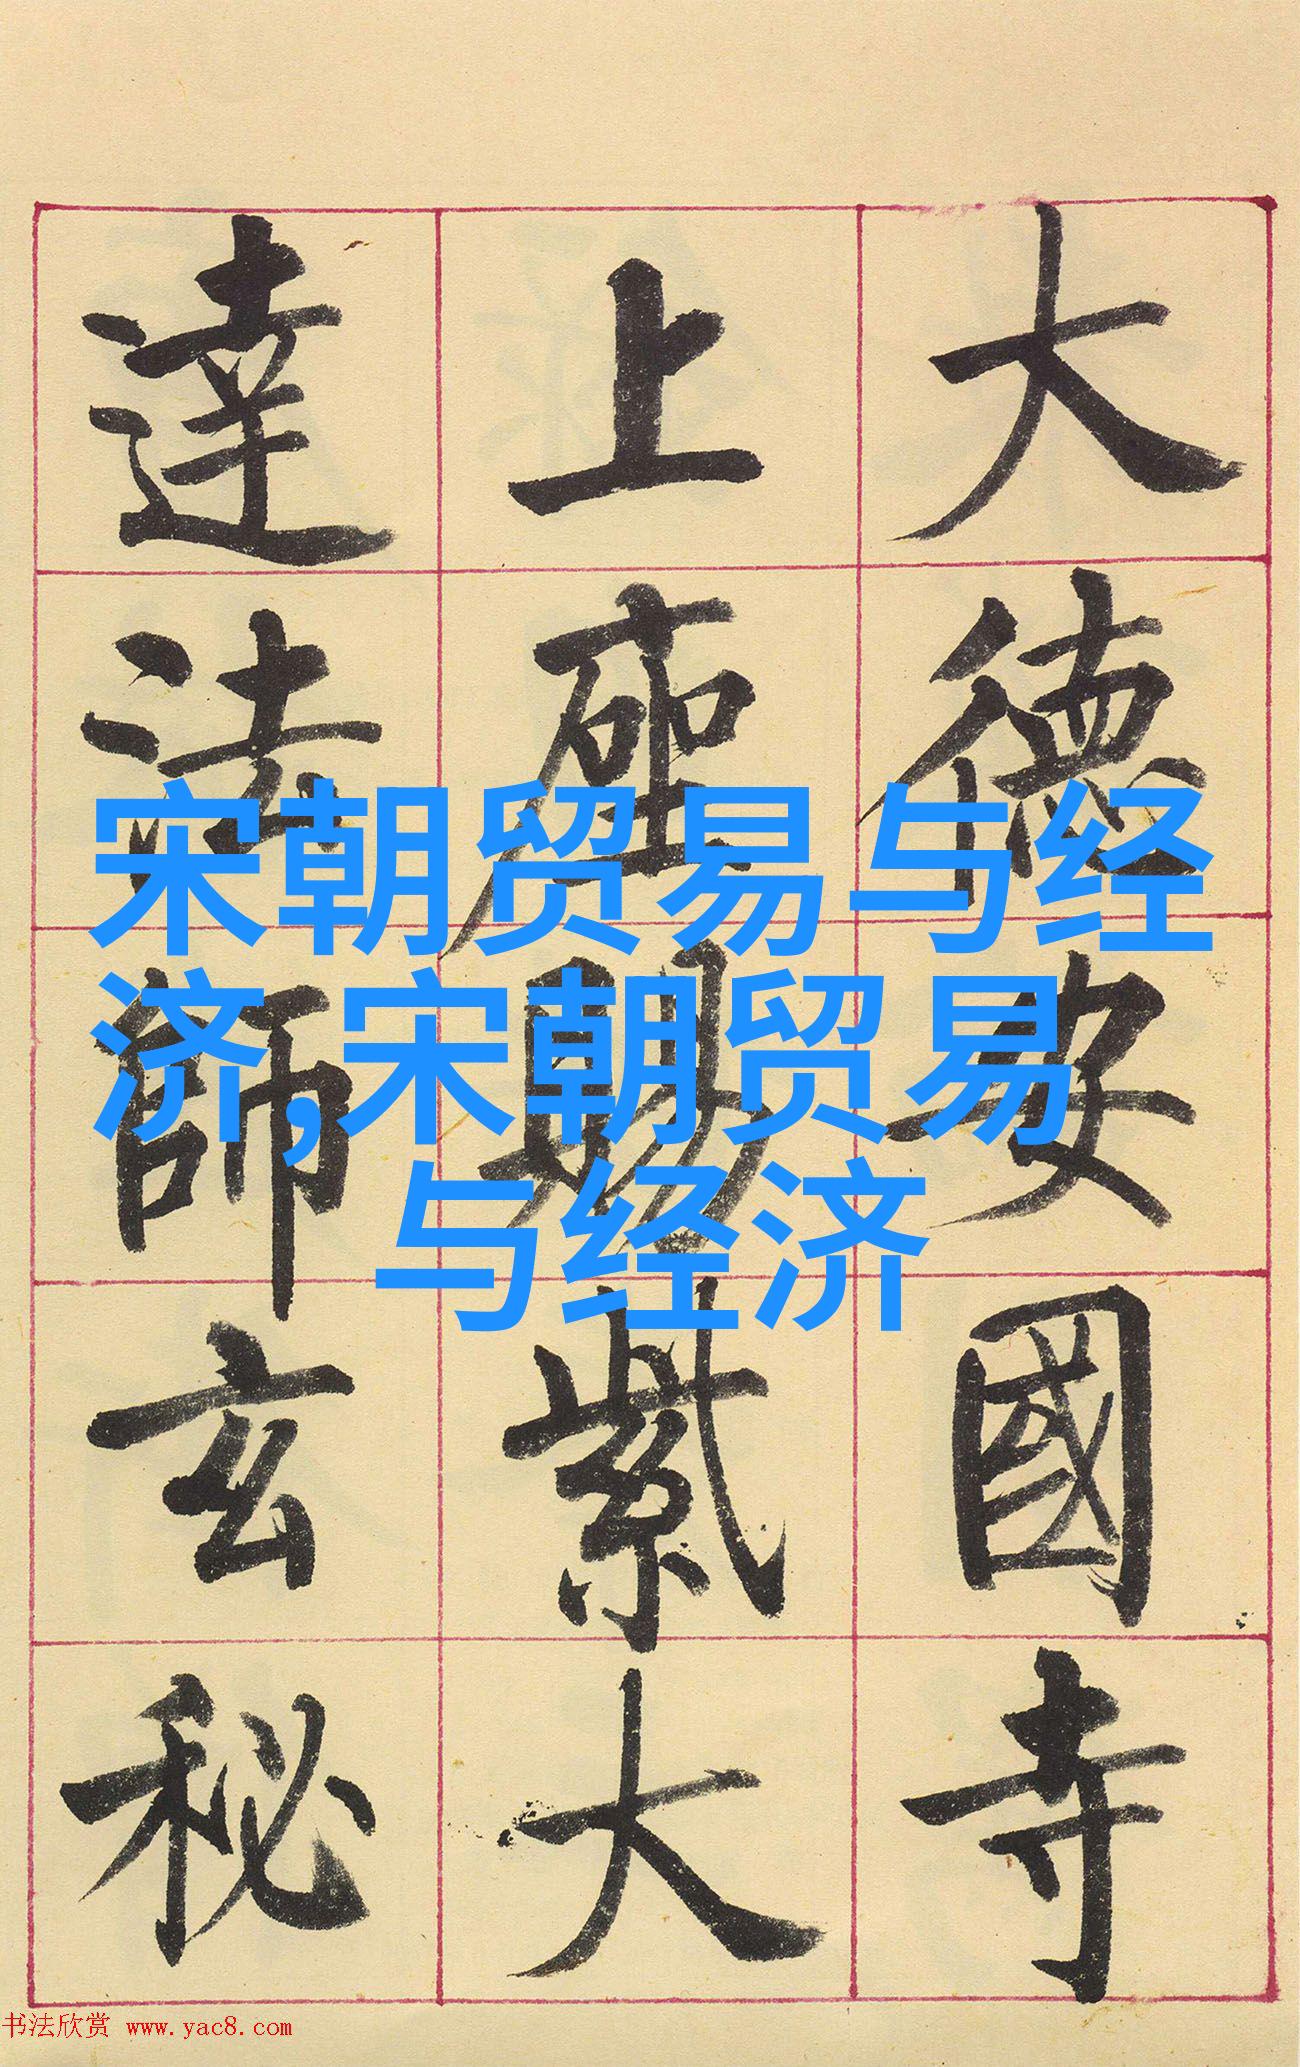 大德安國寺
上座賜紫大
達法師玄秘
宋朝贸易与经
济,宋朝贸易
与经济
书法欣赏 www.yac8.com